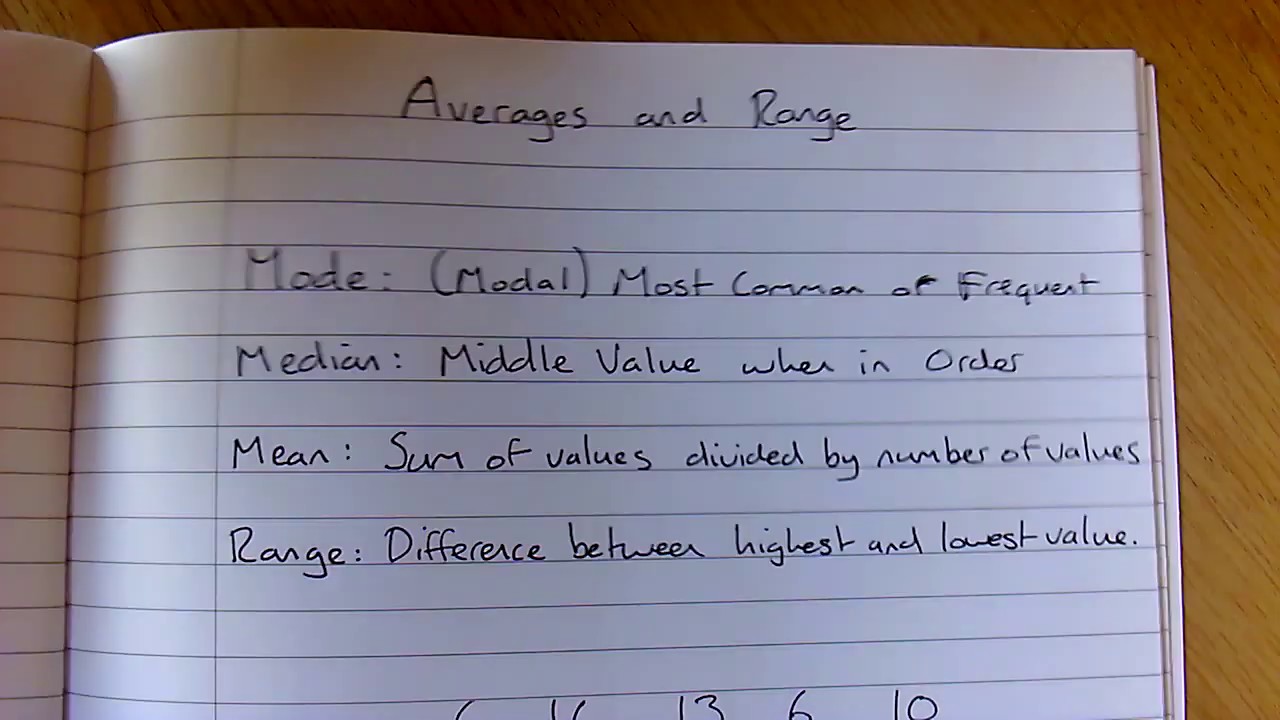 Averages and Range
Mode: (Modal) Most Common or Frequent
Median: Middle Value when in Order
Mean: Sum of values divided by number of values
Range: Difference between highest and lowest value.
13 6 10